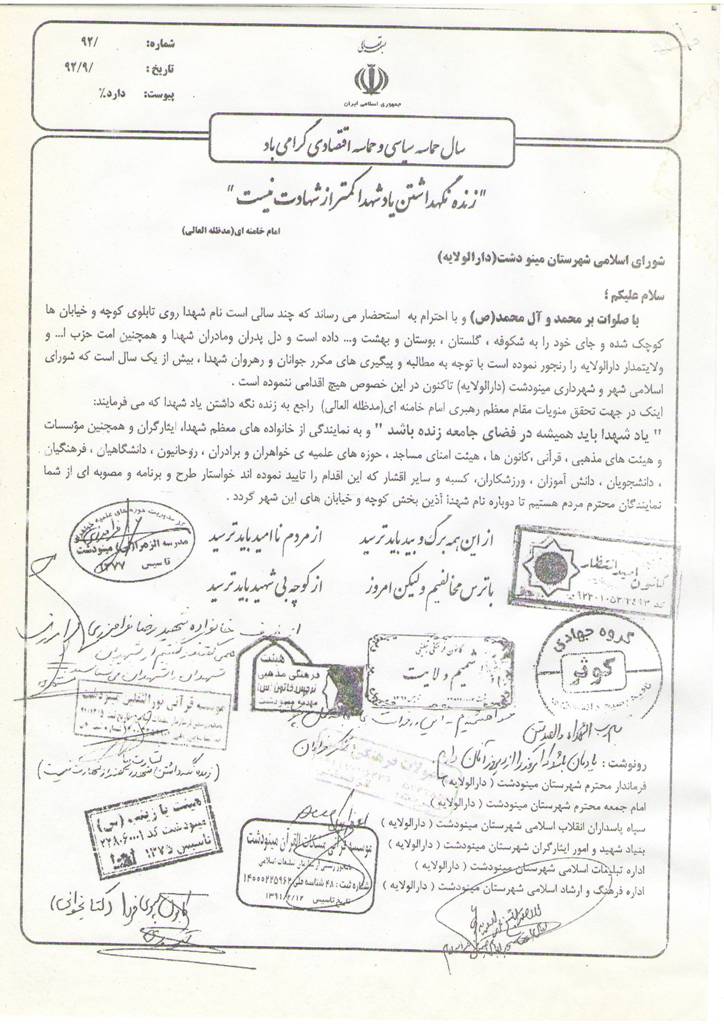 شماره: ۹۲/
تاریخ : ۹۲/۹/
پیوست: دارد٪
جمهوری اسلامی ایران
سال حماسه سیاسی و حماسه اقتصادی گرامی باد
"زنده نگهداشتن یاد شهدا کمتر از شهادت نیست"
امام خامنه ای(مدظله العالی)
شورای اسلامی شهرستان مینو دشت(دارالولایه)
سلام علیکم ؛
با صلوات بر محمد و آل محمد(ص) و با احترام به استحضار می رساند که چند سالی است نام شهدا روی تابلوی کوچه و خیابان ها
کوچک شده و جای خود را به شکوفه ، گلستان ، بوستان و بهشت و... داده است و دل پدران ومادران شهدا و همچنین امت حزب ا... و
ولایتمدار دارالولایه را رنجور نموده است با توجه به مطالبه و پیگیری های مکرر جوانان و رهروان شهدا ، بیش از یک سال است که شورای
اسلامی شهر و شهرداری مینودشت (دارالولایه) تاکنون در این خصوص هیچ اقدامی ننموده است .
اینک در جهت تحقق منویات مقام معظم رهبری امام خامنه ای(مدظله العالی) راجع به زنده نگه داشتن یاد شهدا که می فرمایند:
" یاد شهدا باید همیشه در فضای جامعه زنده باشد " و به نمایندگی از خانواده های معظم شهدا، ایثارگران و همچنین مؤسسات
و هیئت های مذهبی ، قرآنی ،کانون ها ، هیئت امنای مساجد ، حوزه های علمیه ی خواهران و برادران ، روحانیون ، دانشگاهیان ، فرهنگیان
، دانشجویان ، دانش آموزان ، ورزشکاران، کسبه و سایر اقشار که این اقدام را تایید نموده اند خواستار طرح و برنامه و مصوبه ای از شما
نمایندگان محترم مردم هستیم تا دوباره نام شهدا آذین بخش کوچه و خیابان های این شهر گردد .
از این همه برگ و بید باید ترسید
از مردم ناامید باید ترسید
با ترس مخالفیم ولیکن امروز
از کوچه بی شهید باید ترسید
مدرسه الزهرا(س) مینودشت
تاسیس ۱۳۷۷
کانون امید انتظار
گروه جهادی
کوثر
شمیم ولایت
هیئت
فرهنگی مذهبی
نرجس خاتون(س)
مهدیه مینودشت
موسسه قرآنی نورالثقلین مینودشت
رونوشت :
فرماندار محترم شهرستان مینودشت ( دارالولایه )
امام جمعه محترم شهرستان مینودشت ( دارالولایه )
سپاه پاسداران انقلاب اسلامی شهرستان مینودشت ( دارالولایه )
بنیاد شهید و امور ایثارگران شهرستان مینودشت ( دارالولایه )
اداره تبلیغات اسلامی شهرستان مینودشت ( دارالولایه )
اداره فرهنگ و ارشاد اسلامی شهرستان مینودشت ( دارالولایه )
هیئت یا زینب (س)
تاسیس ۱۳۷۵
موسسه قرآنی مشکات القرآن مینودشت
شماره ثبت : ۴۸ شناسه ملی ۱۴۰۰۰۲۲۵۹۶۲
تاریخ تاسیس ۱۳۹۱/۲/۱۲